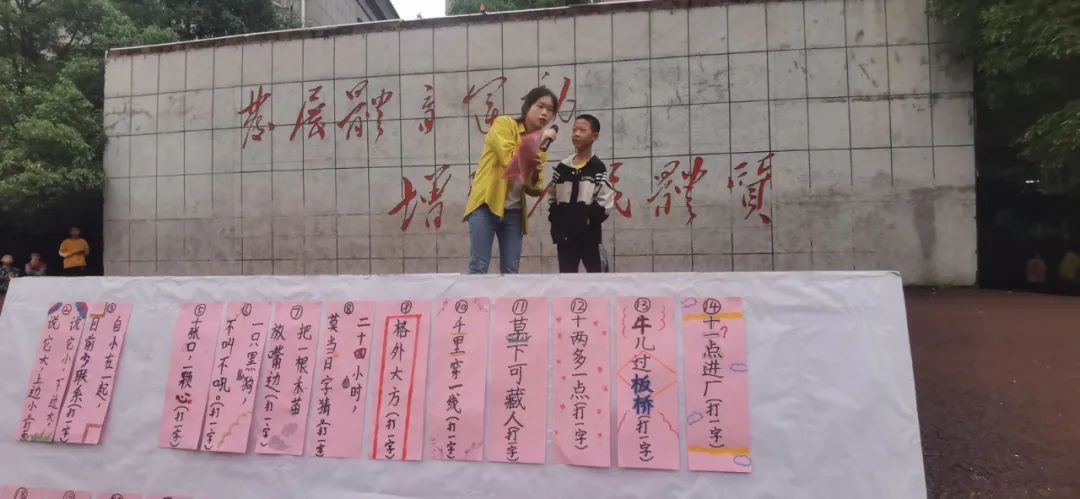 發展體育運
增民體質
②
说它小,下边大,
说它大,上边小
③
自小在一起,
目前少联系(打一字)
⑤
二张口,一颗心(打一字)
⑥
一只黑狗,
不叫不吼。(打一字)
⑦
把一根禾苗
放嘴边(打一字)
⑧
二十四小时,
莫当日字猜(打一字)
⑨
格外大方(打一字)
⑩
千里穿一线(打一字)
⑪
草下可藏人(打一字)
⑫
十两多一点(打一字)
⑬
牛儿过板桥(打一字)
⑭
十一点进厂(打一字)